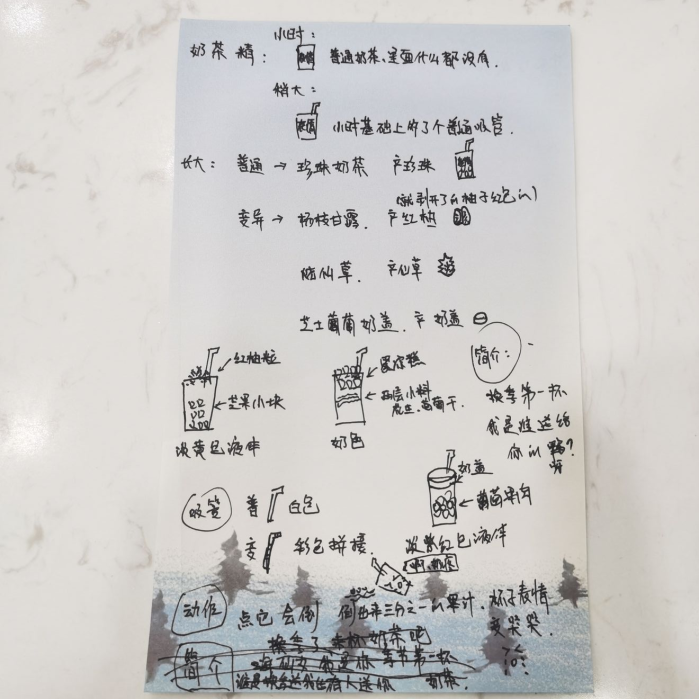 小时：
奶茶精：
普通奶茶、里面什么都没有.
稍大：
小时基础上的了个普通吸管.
长大： 普通 → 珍珠奶茶 产珍珠
(就剥开了的柚子红色的)
变异 → 杨枝甘露. 产红柚
烧仙草. 产仙草
芝士葡萄奶盖. 产奶盖
简介：
红柚粒
芒果小块
淡黄色液体
两层小料
葡萄干
奶色
换季第一杯
我是谁送给
你的
呀
奶盖
葡萄果肉
淡紫红色液体
吸管 普 白色
变 彩色拼接.
动作 点它会倒 倒出来三分之一的果汁. 杯子表情
变哭哭.
简介 换季了来杯奶茶吧
春节第一杯
奶茶.